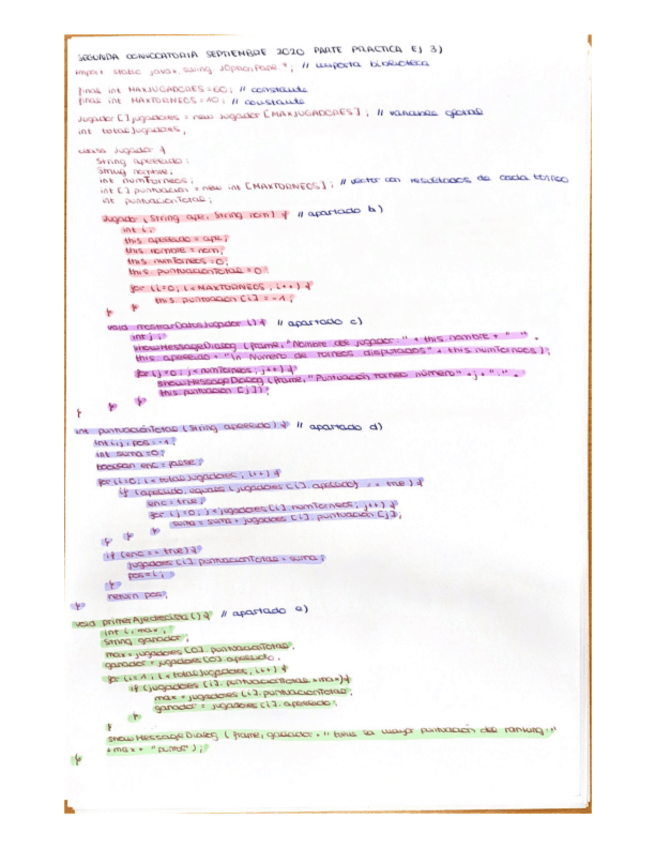 SEGUNDA CONVOCATORIA SEPTIEMBRE 2020 PARTE PRACTICA EJ 3)
import static javax.swing.JOptionPane.*; // importa biblioteca
final int MAXJUGADORES=60; // constante
final int MAXTORNEOS=40; // constante
Jugador []jugadores = new Jugador [MAXJUGADORES]; // variable global
int totalJugadores;
class Jugador {
String apellido;
String nombre;
int numTorneos;
int [] puntuacion = new int [MAXTORNEOS]; // vector con resultados de cada torneo
int puntuacionTotal;
Jugador (String ape, String nom) { // apartado b)
int i;
this.apellido = ape;
this.nombre = nom;
this.numTorneos = 0;
this.puntuacionTotal = 0
for (i=0; i<MAXTORNEOS; i++) {
this.puntuacion [i] = -1;
} }
void mostrarDatosJugador () { // apartado c)
int j;
showMessageDialog (frame, "Nombre del jugador: " + this.nombre + " " +
this.apellido + "\n Numero de torneos disputados" + this.numTorneos);
for (j=0; j<numTorneos; j++) {
showMessageDialog (frame, "Puntuación torneo número" +j+ ":" +
this.puntuacion [j]);
} } }
int puntuaciónTotal (String apellido) { // apartado d)
int i, j, pos = -1;
int suma =0;
boolean enc = false;
for (i=0; i < totalJugadores; i++) {
if (apellido.equals (jugadores [i].apellido) == true) {
enc = true;
for (j=0; j<jugadores [i].numTorneos; j++) {
suma = suma + jugadores [i].puntuacion [j];
} } }
if (enc == true) {
jugadores [i].puntuacionTotal = suma;
pos = i;
}
return pos;
}
void primerAjedrecista () { // apartado e)
int i, max;
String ganador;
max = jugadores [0].puntuacionTotal;
ganador = jugadores [0].apellido;
for (i=1; i < totalJugadores; i++) {
if (jugadores [i].puntuacionTotal > max) {
max = jugadores [i].puntuacionTotal;
ganador = jugadores [i].apellido;
}
}
showMessageDialog (frame, ganador + " tiene la mayor puntuación del ranking:"
+ max + "puntos");
}